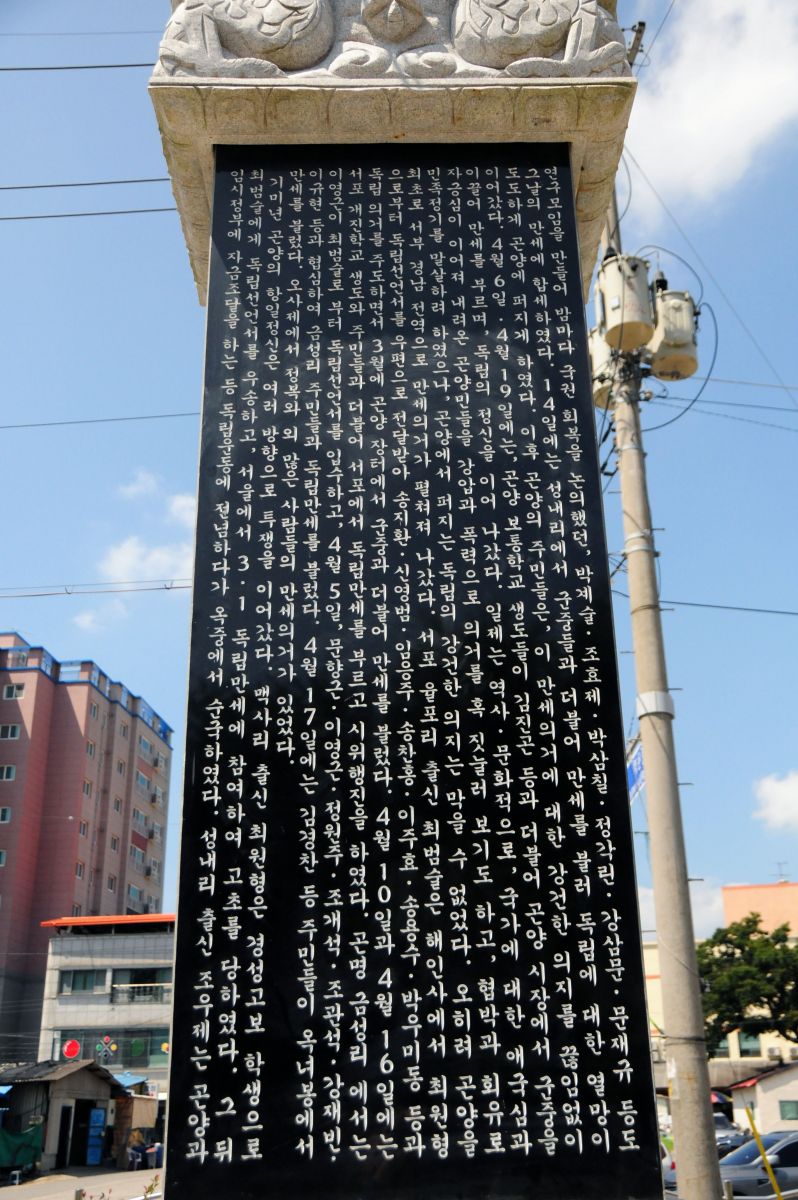 연구모임을 만들어 밤마다 국권 회복을 논의했던, 박계슬 · 조효제 · 박삼칠 · 정각린 · 강삼문 · 문재규 등도
그날의 만세에 합세하였다. 14일에는 성내리에서 군중들과 더불어 만세를 불러 독립에 대한 열망이
도도하게 곤양에 퍼지게 하였다. 이후 곤양의 주민들은, 이 만세의거에 대한 강건한 의지를 끊임없이
이어갔다. 4월 6일 · 4월 19일에는, 곤양 보통학교 생도들이 김진곤 등과 더불어 곤양 시장에서 군중을
이끌어 만세를 부르며, 독립의 정신을 이어 나갔다. 일제는 역사 · 문화적으로, 국가에 대한 애국심과
자긍심이 이어져 내려온 곤양민들을 강압과 폭력으로 의거를 혹 짓눌러 보기도 하고, 협박과 회유로
민족정기를 말살하려 하였으나 곤양에서 퍼지는 독립의 강건한 의지는 막을 수 없었다. 오히려 곤양을
최초로 서부 경남 전역으로 만세의거가 펼쳐져 나갔다. 서포 율포리 출신 최범술은 해인사에서 최원형
으로부터 독립선언서를 우편으로 전달받아 송지환 · 신영범 · 임응주 · 송찬홍 · 이주효 · 송용수 · 박우미동 등과
독립 의거를 주도하면서 3월에 곤양 장터에서 군중과 더불어 만세를 불렀다. 4월 10일과 4월 16일에는
서포 개진학교 생도와 주민들과 더불어 서포에서 독립만세를 부르고 시위행진을 하였다. 곤명 금성리에서는
이영근이 최범술로 부터 독립선언서를 입수하고, 4월 5일, 문항근 · 이영근 · 정원주 · 조개석 · 조관석 · 강재빈 ·
이규현 등과 협심하여 금성리 주민들과 독립만세를 불렀다. 4월 17일에는 김경찬 등 주민들이 옥녀봉에서
만세를 불렀다. 오사제에서 정복와 외 많은 사람들의 만세의거가 있었다.
기미년 곤양의 항일정신은 여러 방향으로 투쟁을 이어갔다. 맥사리 출신 최원형은 경성고보 학생으로
최범술에게 독립선언서를 우송하고, 서울에서 3·1 독립만세에 참여하여 고초를 당하였다. 그 뒤
임시정부에 자금조달을 하는 등 독립운동에 전념하다가 옥중에서 순국하였다. 성내리 출신 조우제는 곤양과